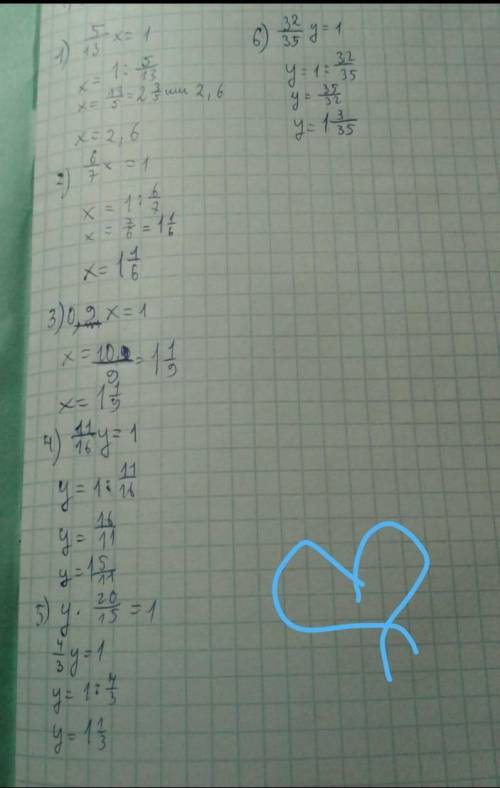 1) 5/13 x = 1
x = 1 : 5/13
x = 13/5 = 2 3/5 или 2,6
x = 2,6
2) 6/7 x = 1
x = 1 : 6/7
x = 7/6 = 1 1/6
x = 1 1/6
3) 0,9 x = 1
x = 10/9 = 1 1/9
x = 1 1/9
4) 11/16 y = 1
y = 1 : 11/16
y = 16/11
y = 1 5/11
5) y · 20/15 = 1
4/3 y = 1
y = 1 : 4/3
y = 1 1/3
6) 32/35 y = 1
y = 1 : 32/35
y = 35/32
y = 1 3/35